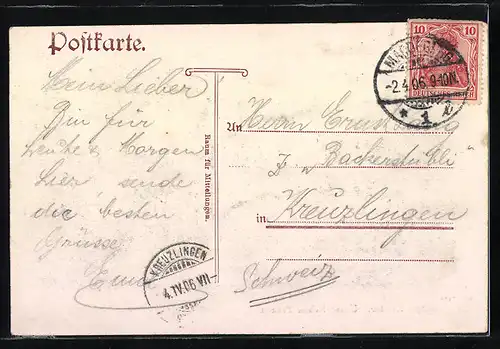 Postkarte.
10 10
DEUTSCHES REICH
MAGDEBURG
-2.4.06. 9-10N.
* 1 i
Mein Lieber
Bin für
heute & Morgen
hier, sende
die besten
Grüsse
Raum für Mitteilungen.
An Herrn
Bäckerstübli
in Kreuzlingen
Schweiz
KREUZLINGEN
4.IV.06.VII-